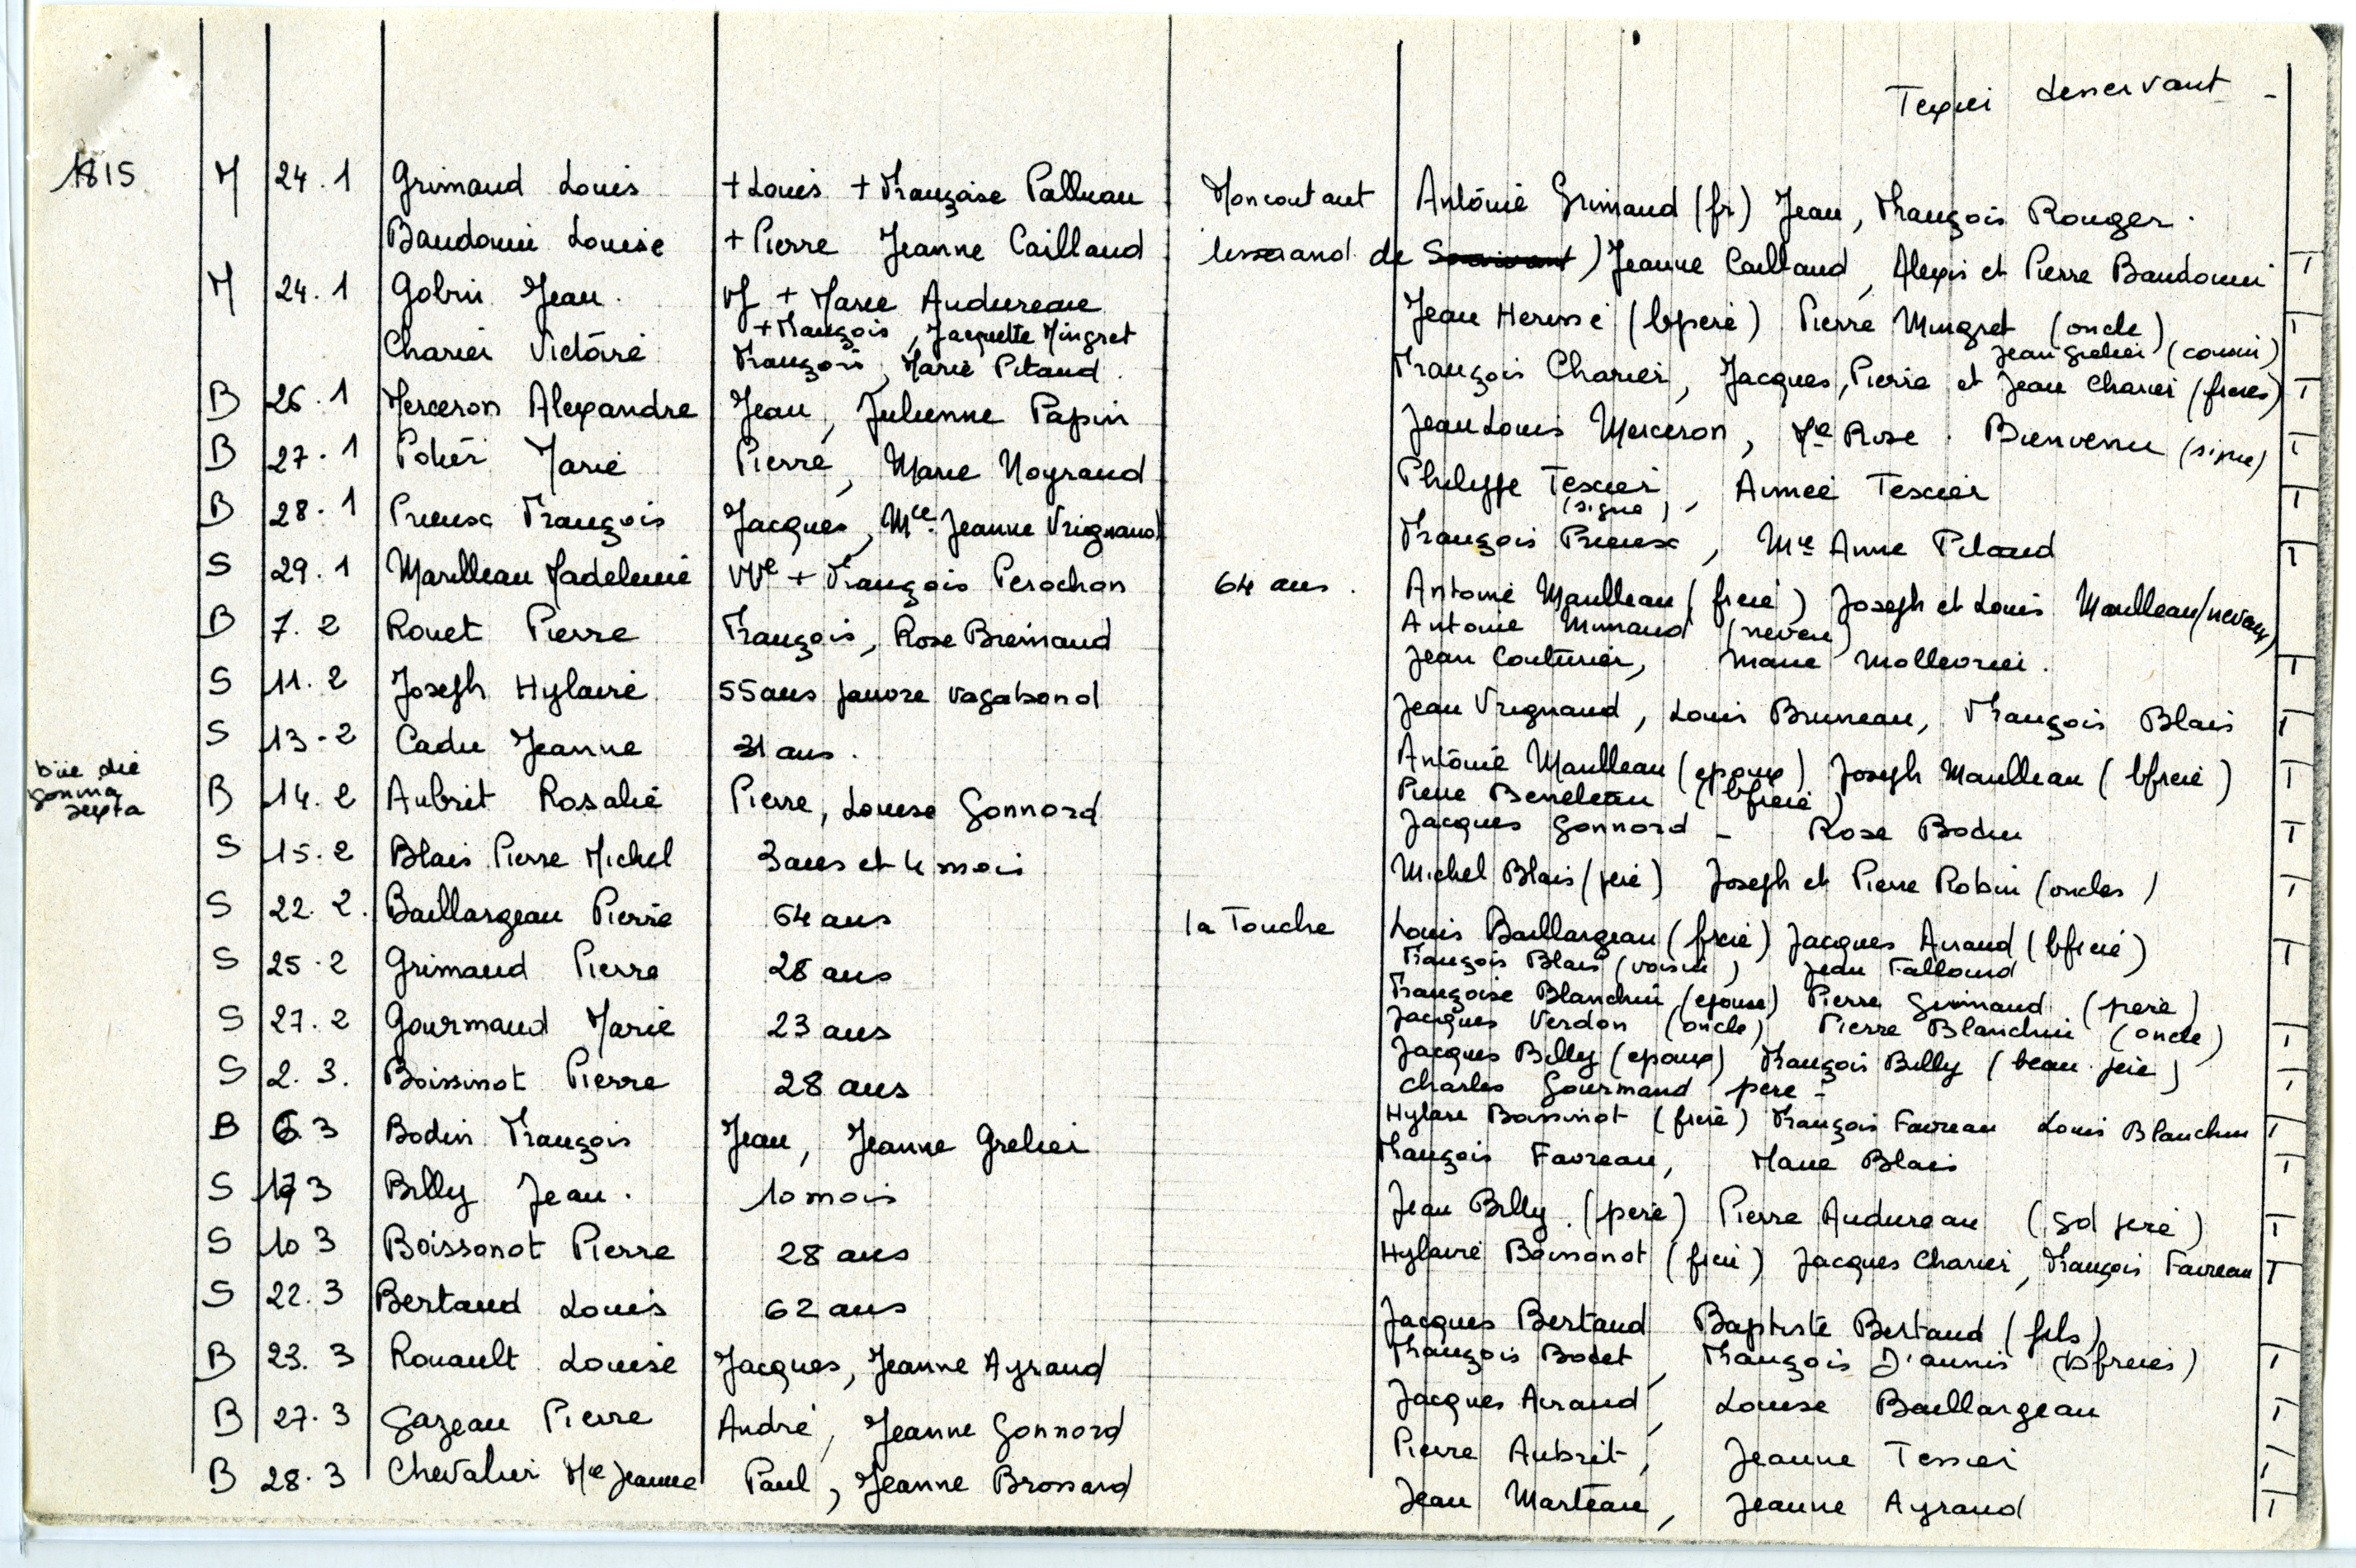 Texier desservant -
1815 M 24.1 Grimaud Louis + Louis + Françoise Palluau Moncoutant Antoine Grimaud (fr) Jean, François Rouger.
Baudouin Louise + Pierre Jeanne Caillaud tisserand de ) Jeanne Caillaud, Alexis et Pierre Baudouin T
M 24.1 Gobin Jean. Vf + Marie Audureau Jean Herissé (bpere) Pierre Mingret (oncle) T
+ François, Jacquette Mingret Jean Grelier (cousin)
Charier Victoire François, Marie Pitaud. François Charier, Jacques, Pierre et Jean Charier (freres) T
B 26.1 Merceron Alexandre Jean, Julienne Papin Jean Louis Merceron, Me Rose. Bienvenu (signe) T
B 27.1 Potier Marie Pierre, Marie Noyraud Philippe Texier, Aimée Texier T
(signe)
B 28.1 Prieux François Jacques, Mie Jeanne Vrignaud François Prieux, Mie Anne Pitaud T
S 29.1 Marilleau Madeleine VVe + François Perochon 64 ans. Antoine Marilleau (frere) Joseph et Louis Marilleau (neveux)
Antoine (neveu)
B 7.2 Rouet Pierre François, Rose Bremaud Jean Couturier, Marie T
S 11.2 Joseph Hylaire 55 ans pauvre vagabond Jean Vrignaud, Louis Bruneau, François Blais T
S 13-2 Cadu Jeanne 31 ans. Antoine Marilleau (epoux) Joseph Marilleau (bfrere) T
Pierre Beneleau (bfrere)
B 14.2 Aubrit Rosalie Pierre, Louise Gonnord Jacques Gonnord - Rose Bodin T
S 15.2 Blais Pierre Michel 3 ans et 4 mois Michel Blais (pere) Joseph et Pierre Robin (oncles) T
S 22.2. Baillargeau Pierre 64 ans la Touche Louis Baillargeau (frere) Jacques Airaud (bfrere) T
François Blais (voisin) Jean Falloud
S 25.2 Grimaud Pierre 28 ans Françoise Blanchin (epouse) Pierre Grimaud (pere)
Jacques Verdon (oncle) Pierre Blanchin (oncle) T
S 27.2 Gourmaud Marie 23 ans Jacques Billy (epoux) François Billy (beau. pere)
Charles Gourmaud pere - T
S 2.3. Boissinot Pierre 28 ans Hylaire Boissinot (frere) François Favreau Louis Blanchin T
B 6.3 Bodin François Jean, Jeanne Grelier François Favreau, Marie Blais T
S 3 Billy Jean. 10 mois Jean Billy. (pere) Pierre Audureau (gd pere) T
S 10 3 Boissonot Pierre 28 ans Hylaire Boissonot (frere) Jacques Charier, François Favreau T
S 22.3 Bertaud Louis 62 ans Jacques Bertaud Baptiste Bertaud (fils)
François Bodet, François D'aunis (bfreres) T
B 23.3 Rouault Louise Jacques, Jeanne Ayraud Jacques Airaud, Louise Baillargeau T
B 27.3 Gazeau Pierre André, Jeanne Gonnord Pierre Aubrit, Jeanne Tessier T
B 28.3 Chevalier Me Jeanne Paul, Jeanne Brossard Jean Marteau, Jeanne Ayraud T